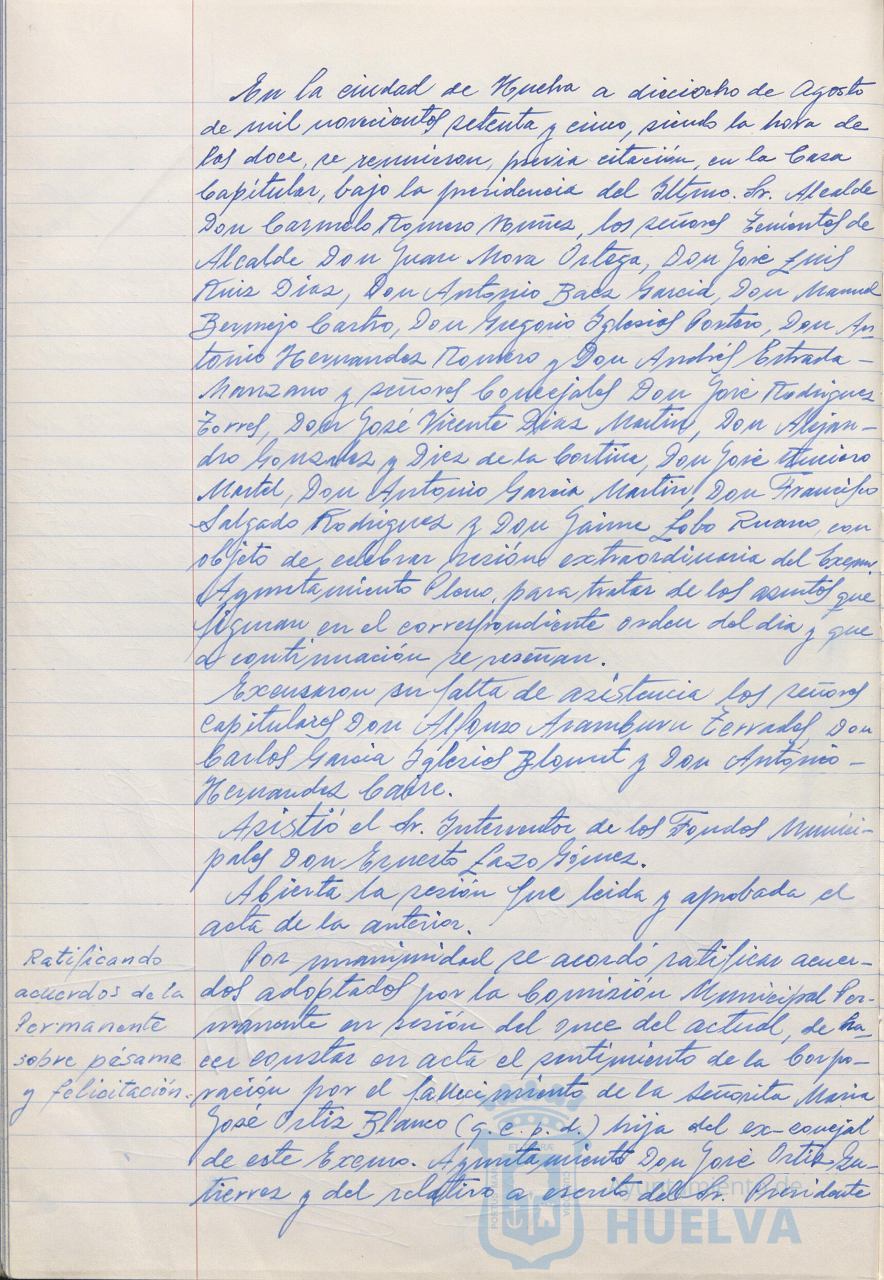 En la ciudad de Huelva a dieciocho de Agosto
de mil novecientos setenta y cinco, siendo la hora de
las doce, se reunieron, previa citación, en la Casa
Capitular, bajo la presidencia del Iltmo. Sr. Alcalde
Don Carmelo Romero Núñez, los señores Tenientes de
Alcalde Don Juan Mora Ortega, Don José Luis
Ruiz Díaz, Don Antonio Baez Garcia, Don Manuel
Bermejo Castro, Don Gregorio Iglesias Portero, Don An-
tonio Hernandez Romero y Don Andrés Estrada -
Manzano y señores Concejales Don José Rodriguez
Torres, Don José Vicente Diaz Martín, Don Alejan-
dro Gonzalez y Diez de la Cortina, Don José
Martel, Don Antonio Garcia Martín, Don Francisco
Salgado Rodriguez y Don Jaime Lobo Ruano, con
objeto de celebrar sesión extraordinaria del Excmo.
Ayuntamiento Pleno, para tratar de los asuntos que
figuran en el correspondiente orden del dia y que
a continuación se reseñan.
Excusaron su falta de asistencia los señores
capitulares Don Alfonso Aramburu Terrades, Don
Carlos Garcia Iglesias y Don Antonio -
Hernandez
Asistió el Sr. Interventor de los Fondos Munici-
pales Don Ernesto Lazo Gómez.
Abierta la sesión fue leida y aprobada el
acta de la anterior.
Ratificando
acuerdos de la
Permanente
sobre pésame
y felicitación.
Por unanimidad se acordó ratificar acuer-
dos adoptados por la Comisión Municipal Per-
manente en sesión del once del actual, de ha-
cer constar en acta el sentimiento de la Corpo-
ración por el fallecimiento de la señorita Maria
José Ortiz Blanco (q.e.p.d.) hija del ex-concejal
de este Excmo. Ayuntamiento Don José Ortiz Gu-
tierrez y del relativo a escrito del Sr. Presidente
Ayuntamiento de
HUELVA